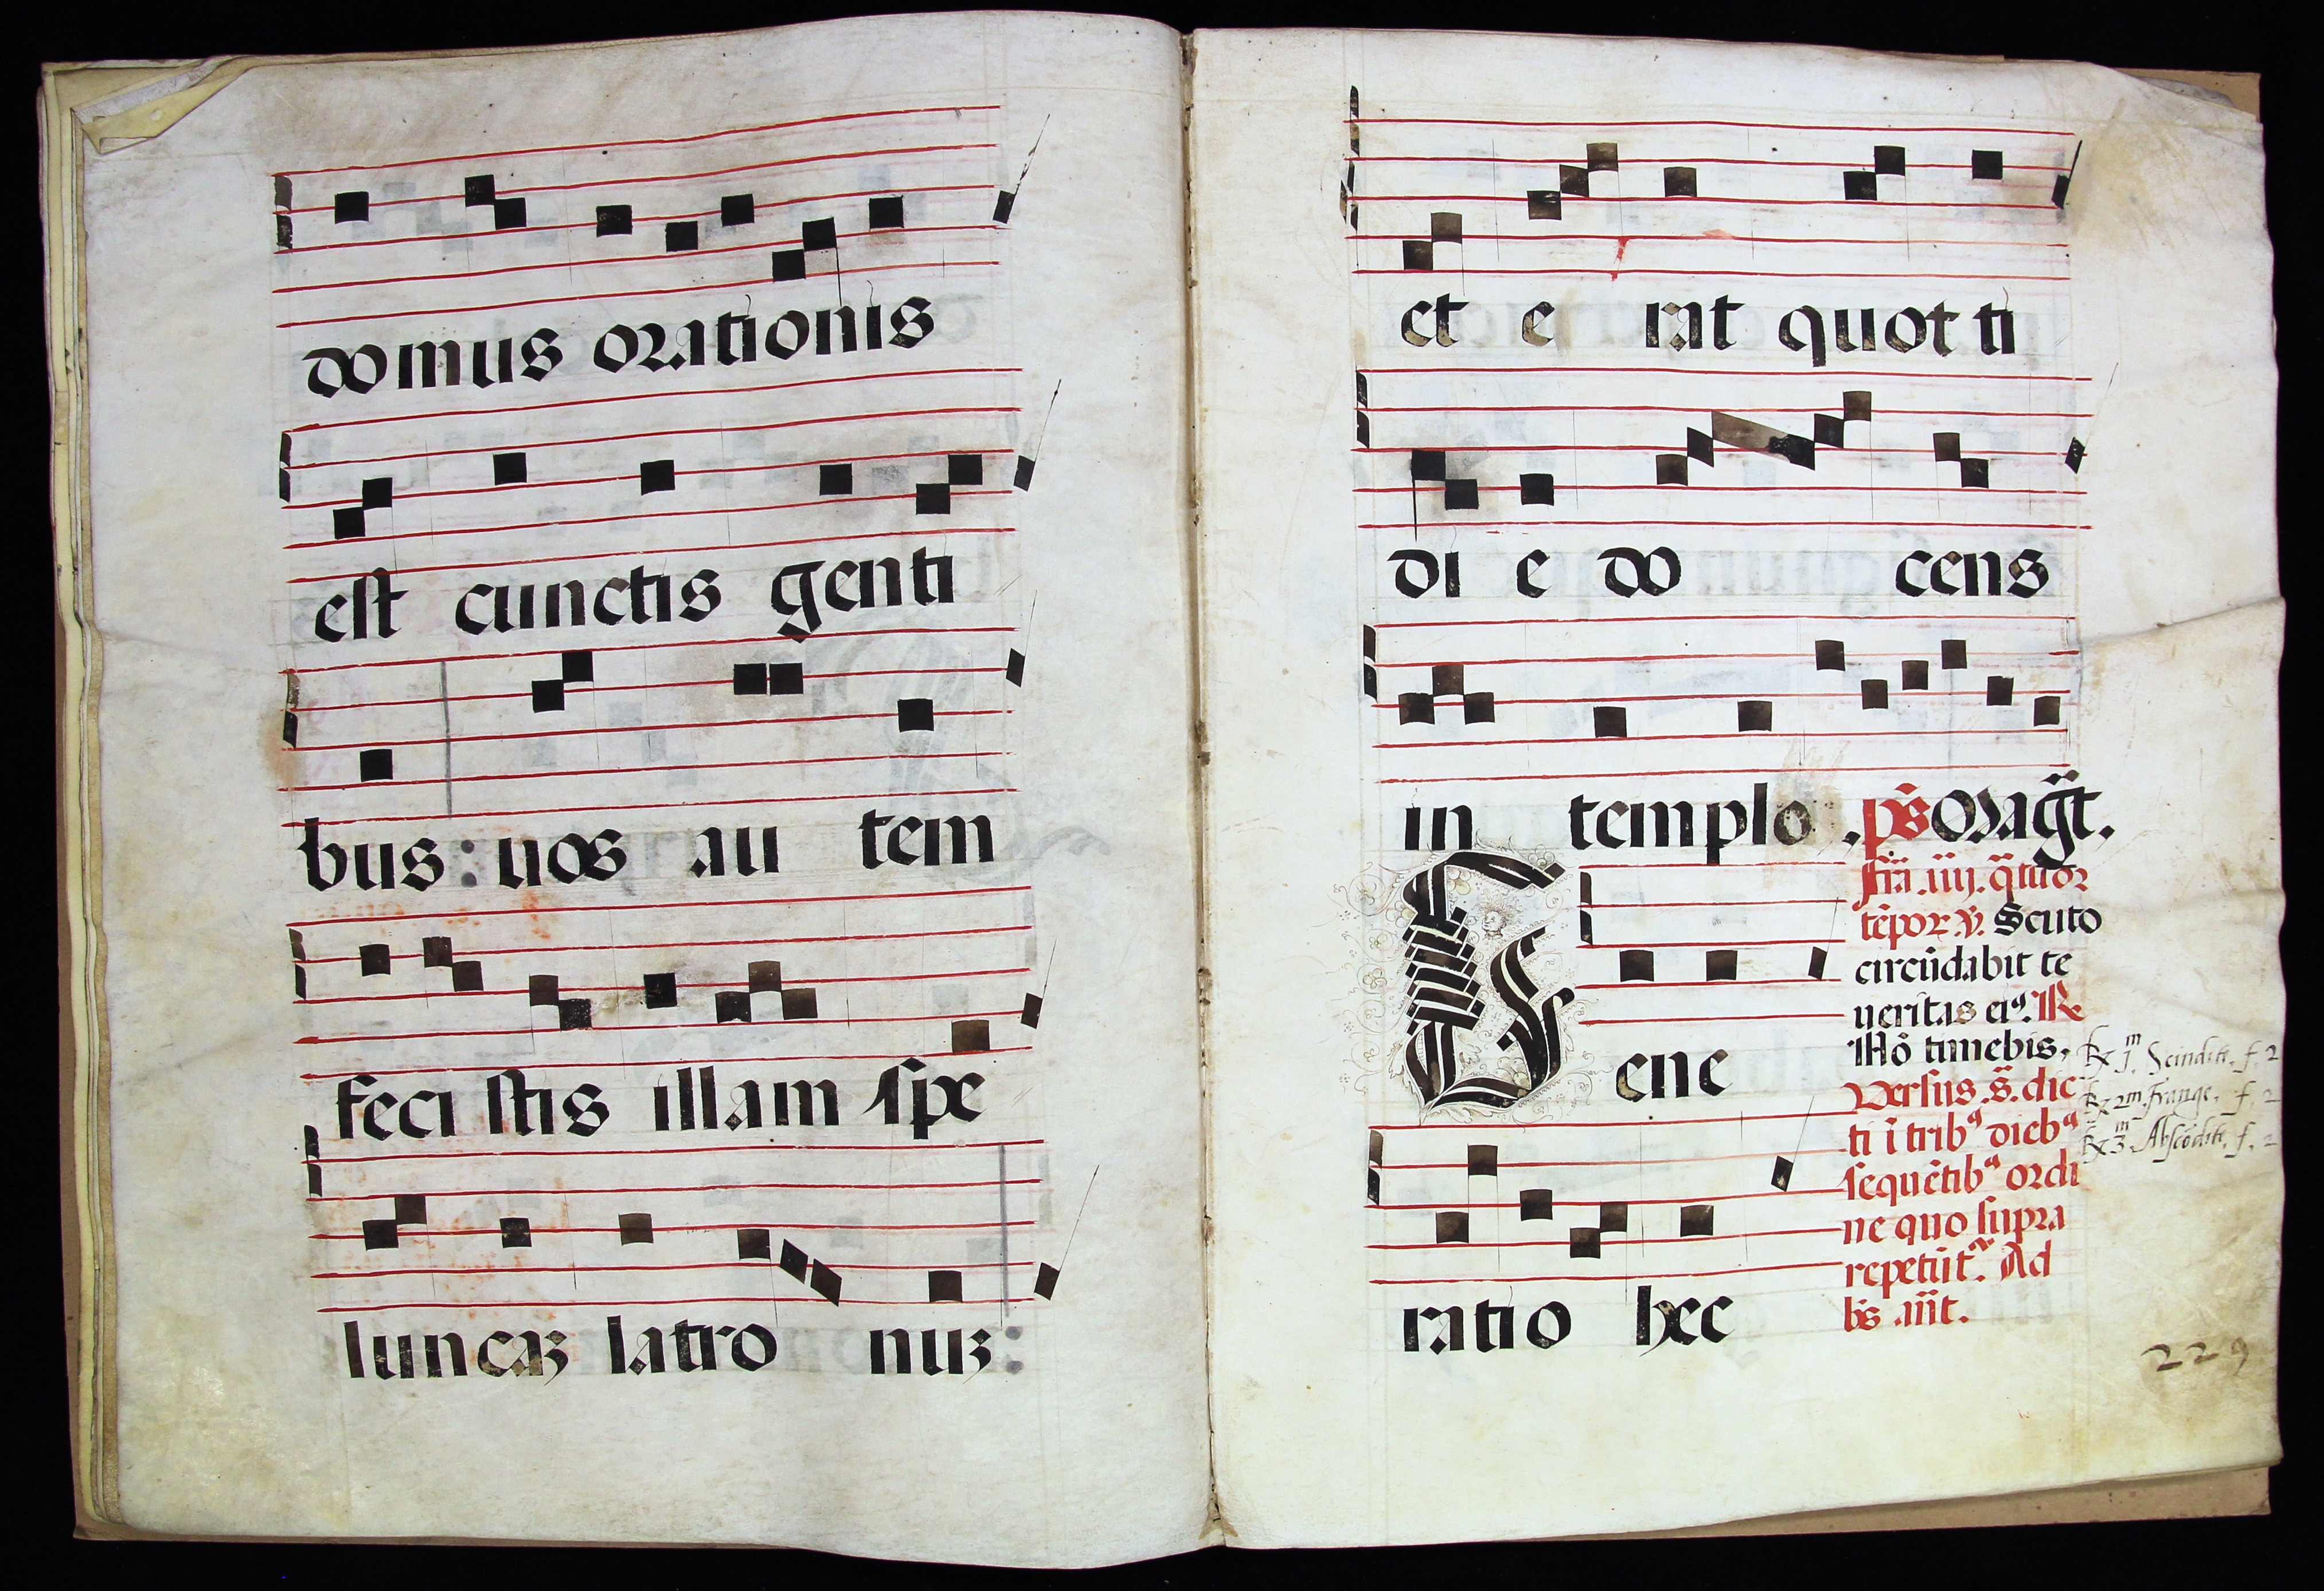 domus orationis
est cunctis genti
bus: uos au tem
feci stis illam spe
luncaʒ latro nuʒ:
et e rat quot ti
di e do cens
in templo .ps̄ Mag̃t.
Fr̃a .iiij. q̃tuor
tẽpor ℣. Scuto
circũdabit te
ueritas eiꝰ. ℟
Nõ timebis,
Versus. s̃. dic
ti ĩ tribꝰ diebꝰ
sequẽtibꝰ ordi
ne quo supra
repetũt᷑. Ad
bs̃ añt.
Gene
ratio hec
℟ 1.m Scindite, f. 2
℟ 2m. Frange, f. 2
℟ 3.m Abscõdite, f. 2
229